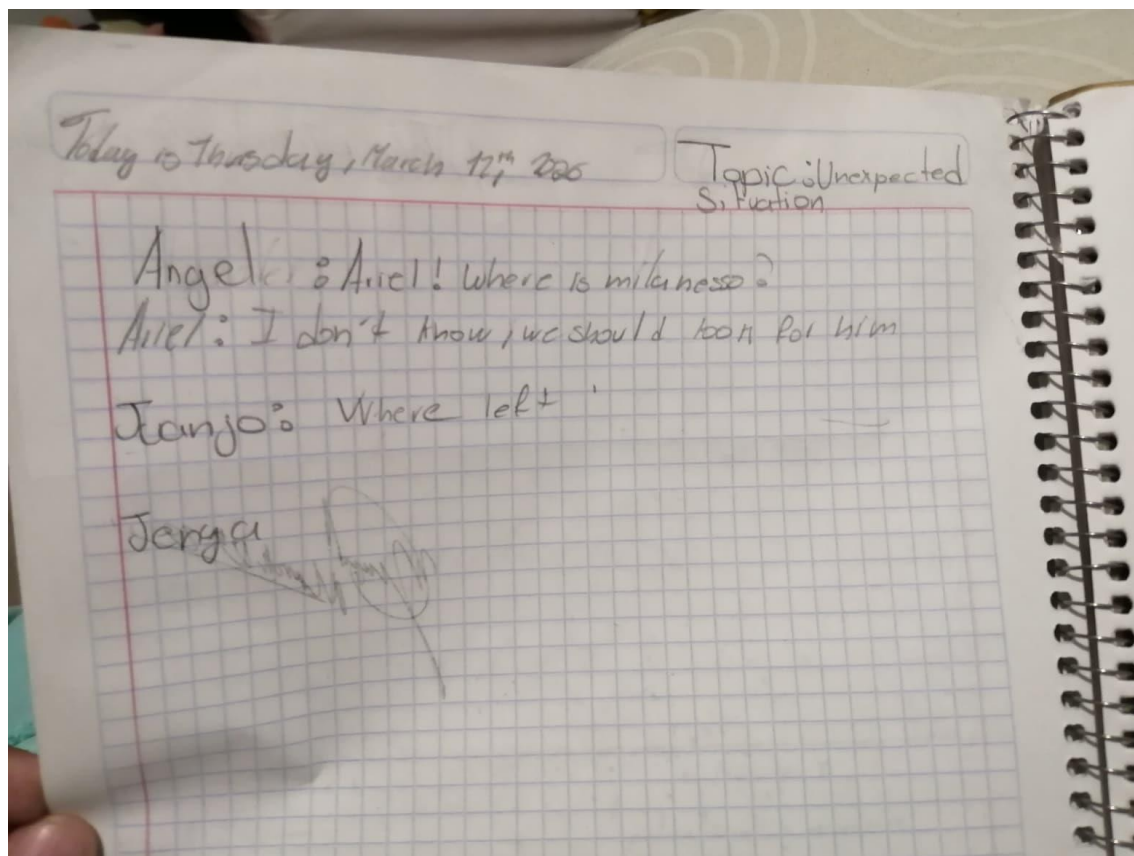 Today is Thursday, March 12th, 2026
Topic: Unexpected
Situation
Angel : Ariel! Where is milanesso?
Ariel: I don't know, we should look for him
Juanjo: Where left
Jenga